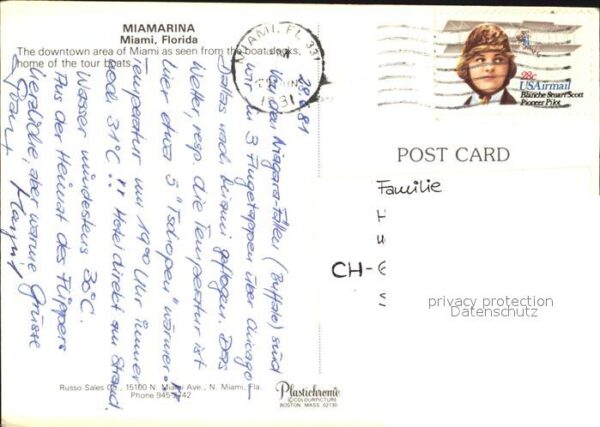 MIAMARINA
Miami, Florida
The downtown area of Miami as seen from the boat docks,
home of the tour boats.
28.6.81
Von den Niagara-Fällen (Buffalo) sind
wir in 3 Flugetappen über Chicago -
Dallas nach Miami geflogen. Das
Wetter, resp. die Temperatur ist
hier etwa 3 "Tschopen" wärmer.
Temperatur um 19⁰⁰ Uhr immer
noch 31°C!! Hotel direkt am Strand.
Wasser mindestens 30°C.
Aus der Heimat des Flippers
herzliche, aber warme Grüsse
MIAMI, FL 331
PM
1981
28c
USAirmail
Blanche Stuart Scott
Pioneer Pilot
POST CARD
Familie
CH-
privacy protection
Datenschutz
Russo Sales Co., 15100 N. Miami Ave., N. Miami, Fla.
Phone 945-
Plastichrome
©COLOURPICTURE
BOSTON, MASS. 02130